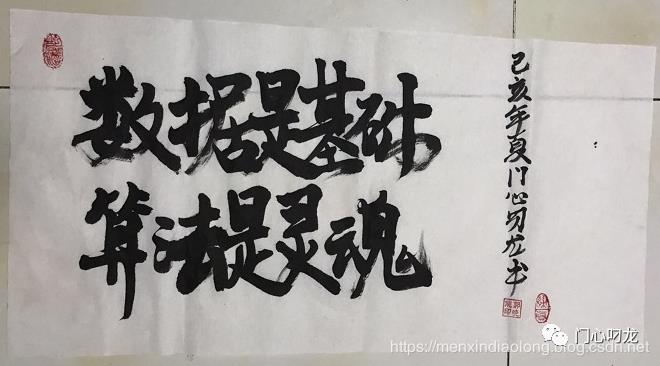 数据是基础
算法是灵魂
己亥年夏门心叼龙书
门心叼龙
https://menxindiaolong.blog.csdn.net